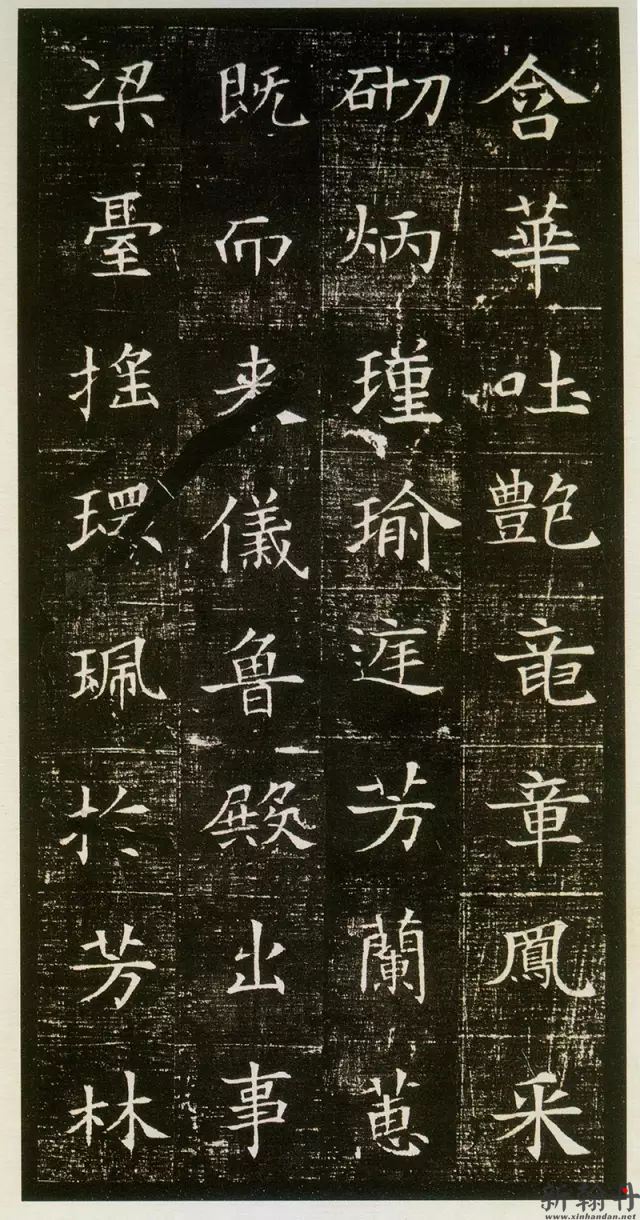 含華吐艷竜章鳳采
砌炳瑾瑜庭芳蘭蕙
既而来儀魯殿出事
梁臺搖環珮於芳林
新翰丹
www.xinhandan.net